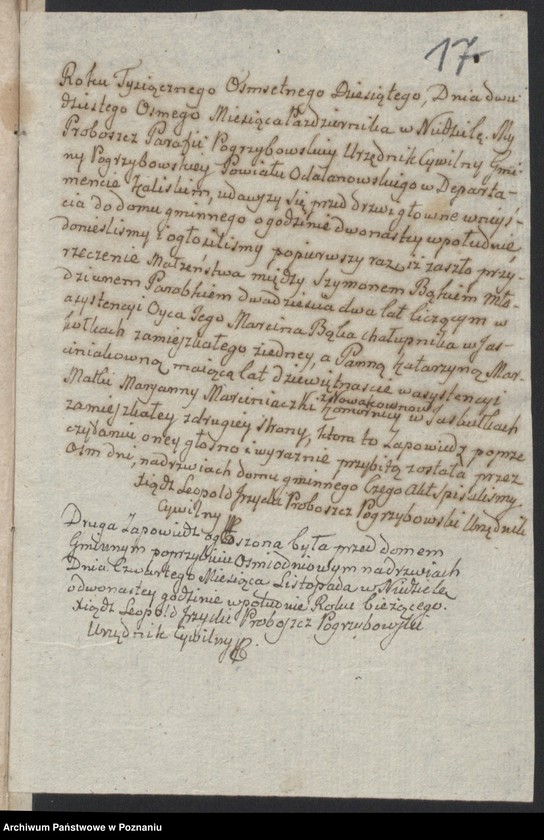 17.
Roku Tysiącznego Osmsetnego Dziesiątego, Dnia dwu-
dziestego Osmego Miesiąca Pazdziernika w Niedzielę. My
Proboszcz Parafii Pogrzybowskiey Urzędnik Cywilny Gmi-
ny Pogrzybowskiey Powiatu Odalanowskiego w Departa-
mencie Kaliskim, udawszy się przed drzwi głowne wnyiś-
cia do domu gminnego o godzinie dwonastey w południe,
doniesliśmy i ogłosiliśmy popierwszy raz, iż zaszło przy-
rzeczenie Małzeństwa między Szymonem Bąkiem Mło-
dzianem Parobkiem dwadziescia dwa lat liczącym w
asystencyi Oyca Jego Marcina Bąka chałupnika w Jas-
kułkach zamieszkałego z iedney, a Panną Katarzyną Mar-
ciniakowną maiącą lat dziewiętnascie w asystencyi
Matki Maryanny Marciniaczki z Nowakownow Komornicy w Jaskułkach
zamieszkałey z drugiey strony, ktora to Zapowiedz po prze-
czytaniu oney głosno i wyraznie przybitą została przez
Osm dni, na drzwiach domu gminnego Czego Akt Spisaliśmy.
Xiądz Leopold Proboszcz Pogrzybowski Urzędnik
Cywilny
Druga Zapowiedz ogłoszona była przed domem
Gminnym po przybiciu Osmiodniowym na drzwiach
Dnia Czwartego Miesiąca Listopada w Niedzielę
o dwonastey godzinie w południe Roku bieżącego.
Xiądz Leopold Proboszcz Pogrzybowski
Urzędnik Cywilny
Archiwum Państwowe w Poznaniu